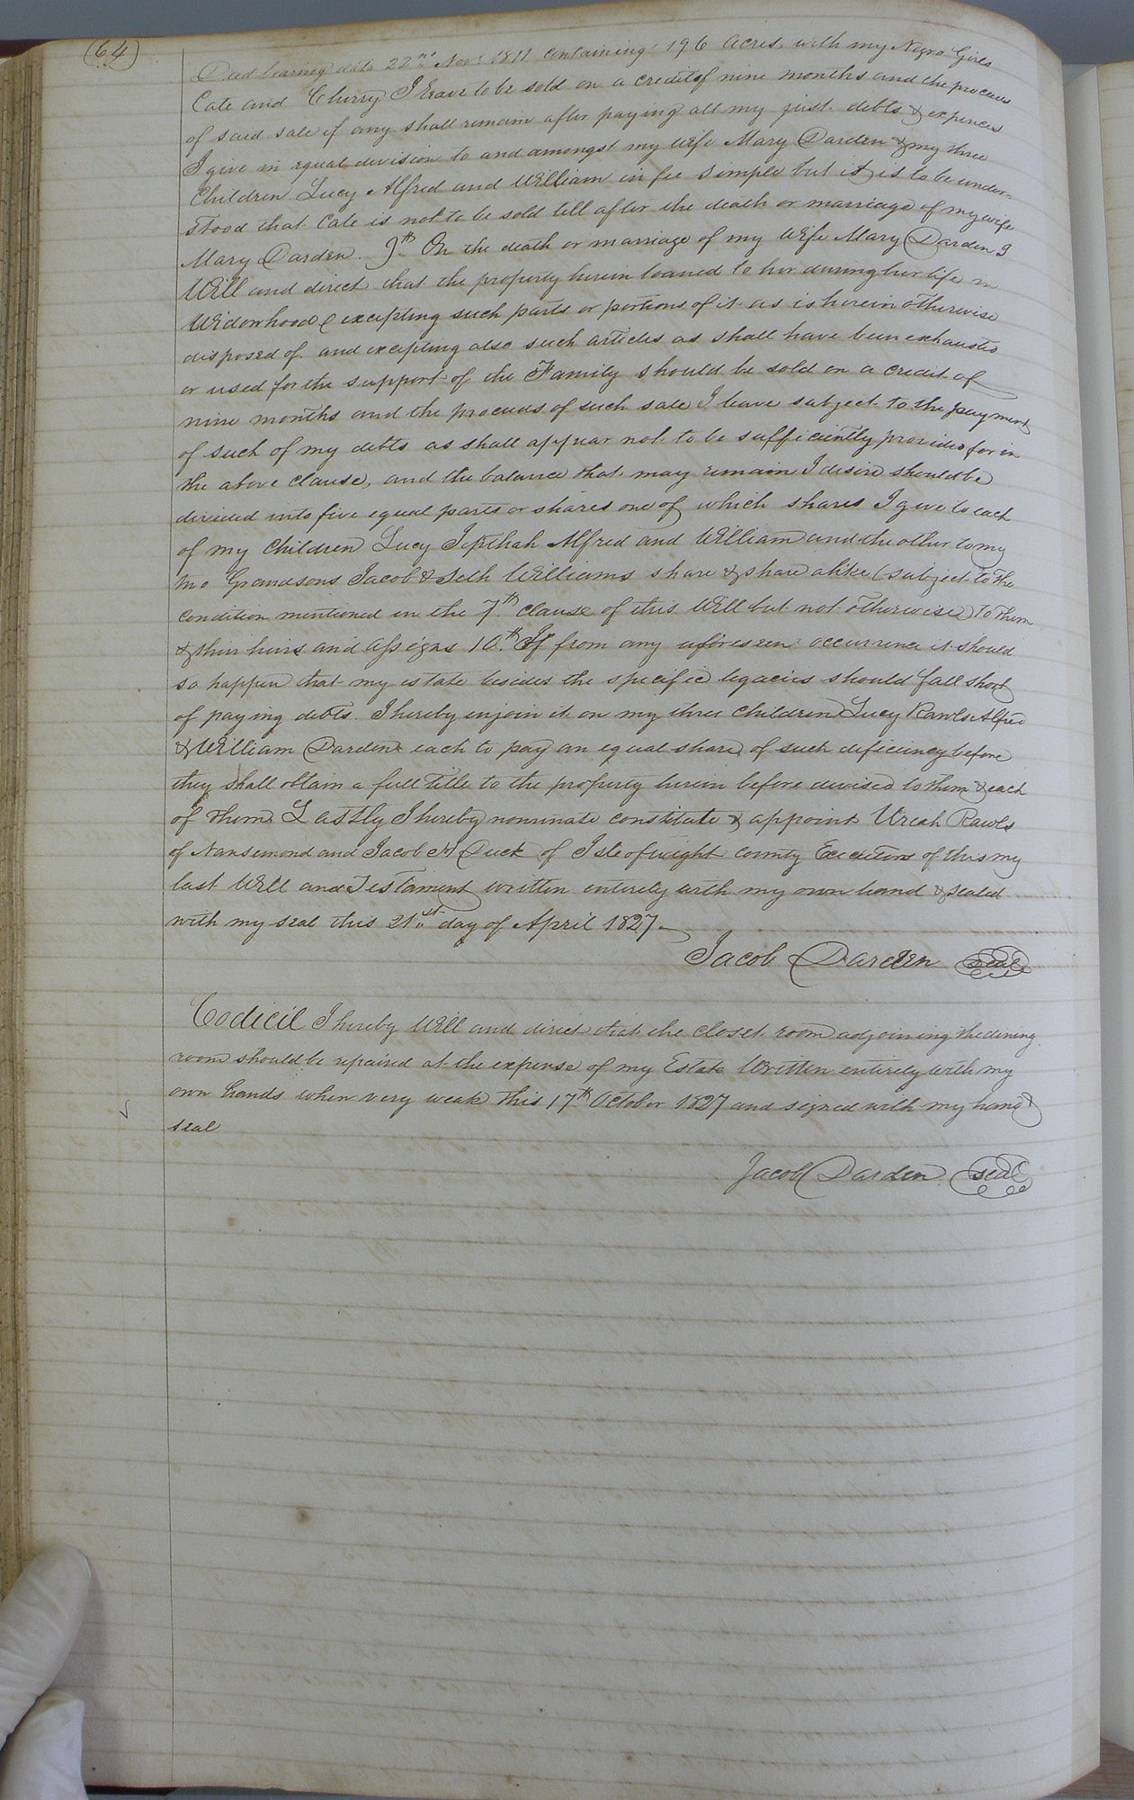 (64)
Deed bearing date 22nd Novr 1811 containing 196 acres, with my Negro Girls
Cate and Cherry I leave to be sold on a credit of nine months and the proceeds
of said sale if any shall remain after paying all my just debts & expences
I give in equal division to and amongst my wife Mary Darden & my three
Children Lucy Alfred and William in fee simple but it is to be under-
stood that Cate is not to be sold till after the death or marriage of my wife
Mary Darden. 9th On the death or marriage of my wife Mary Darden I
Will and direct that the property herein loaned to her during her life or
Widowhood excepting such parts or portions of it as is herein otherwise
disposed of and excepting also such articles as shall have been exhausted
or used for the support of the Family should be sold on a credit of
nine months and the proceeds of such sale I leave subject to the payment
of such of my debts as shall appear not to be sufficiently provided for in
the above clause, and the balance that may remain I desire should be
divided into five equal parts or shares one of which shares I give to each
of my Children Lucy Jepthah Alfred and William and the other to my
two Grandsons Jacob & Seth Williams share & share alike (subject to the
condition mentioned in the 7th clause of this Will but not otherwise) to them
& their heirs and assigns 10th If from any unforeseen occurrence it should
so happen that my estate besides the specific legacies should fall short
of paying debts. I hereby enjoin it on my three Children Lucy Rawls Alfred
& William Darden each to pay an equal share of such deficiency before
they shall obtain a full title to the property herein before devised to them & each
of them Lastly I hereby nominate constitute & appoint Uriah Rawls
of Nansemond and Jacob H Duck of Isle of wight County Executors of this my
last Will and Testament written entirely with my own hand & sealed
with my seal this 21st day of April 1827.
Jacob Darden seal
Codicil I hereby Will and direct that the closet room adjoining the dining
room should be repaired at the expense of my Estate Written entirely with my
own hands when very weak this 17th October 1827 and signed with my hand &
seal
Jacob Darden seal